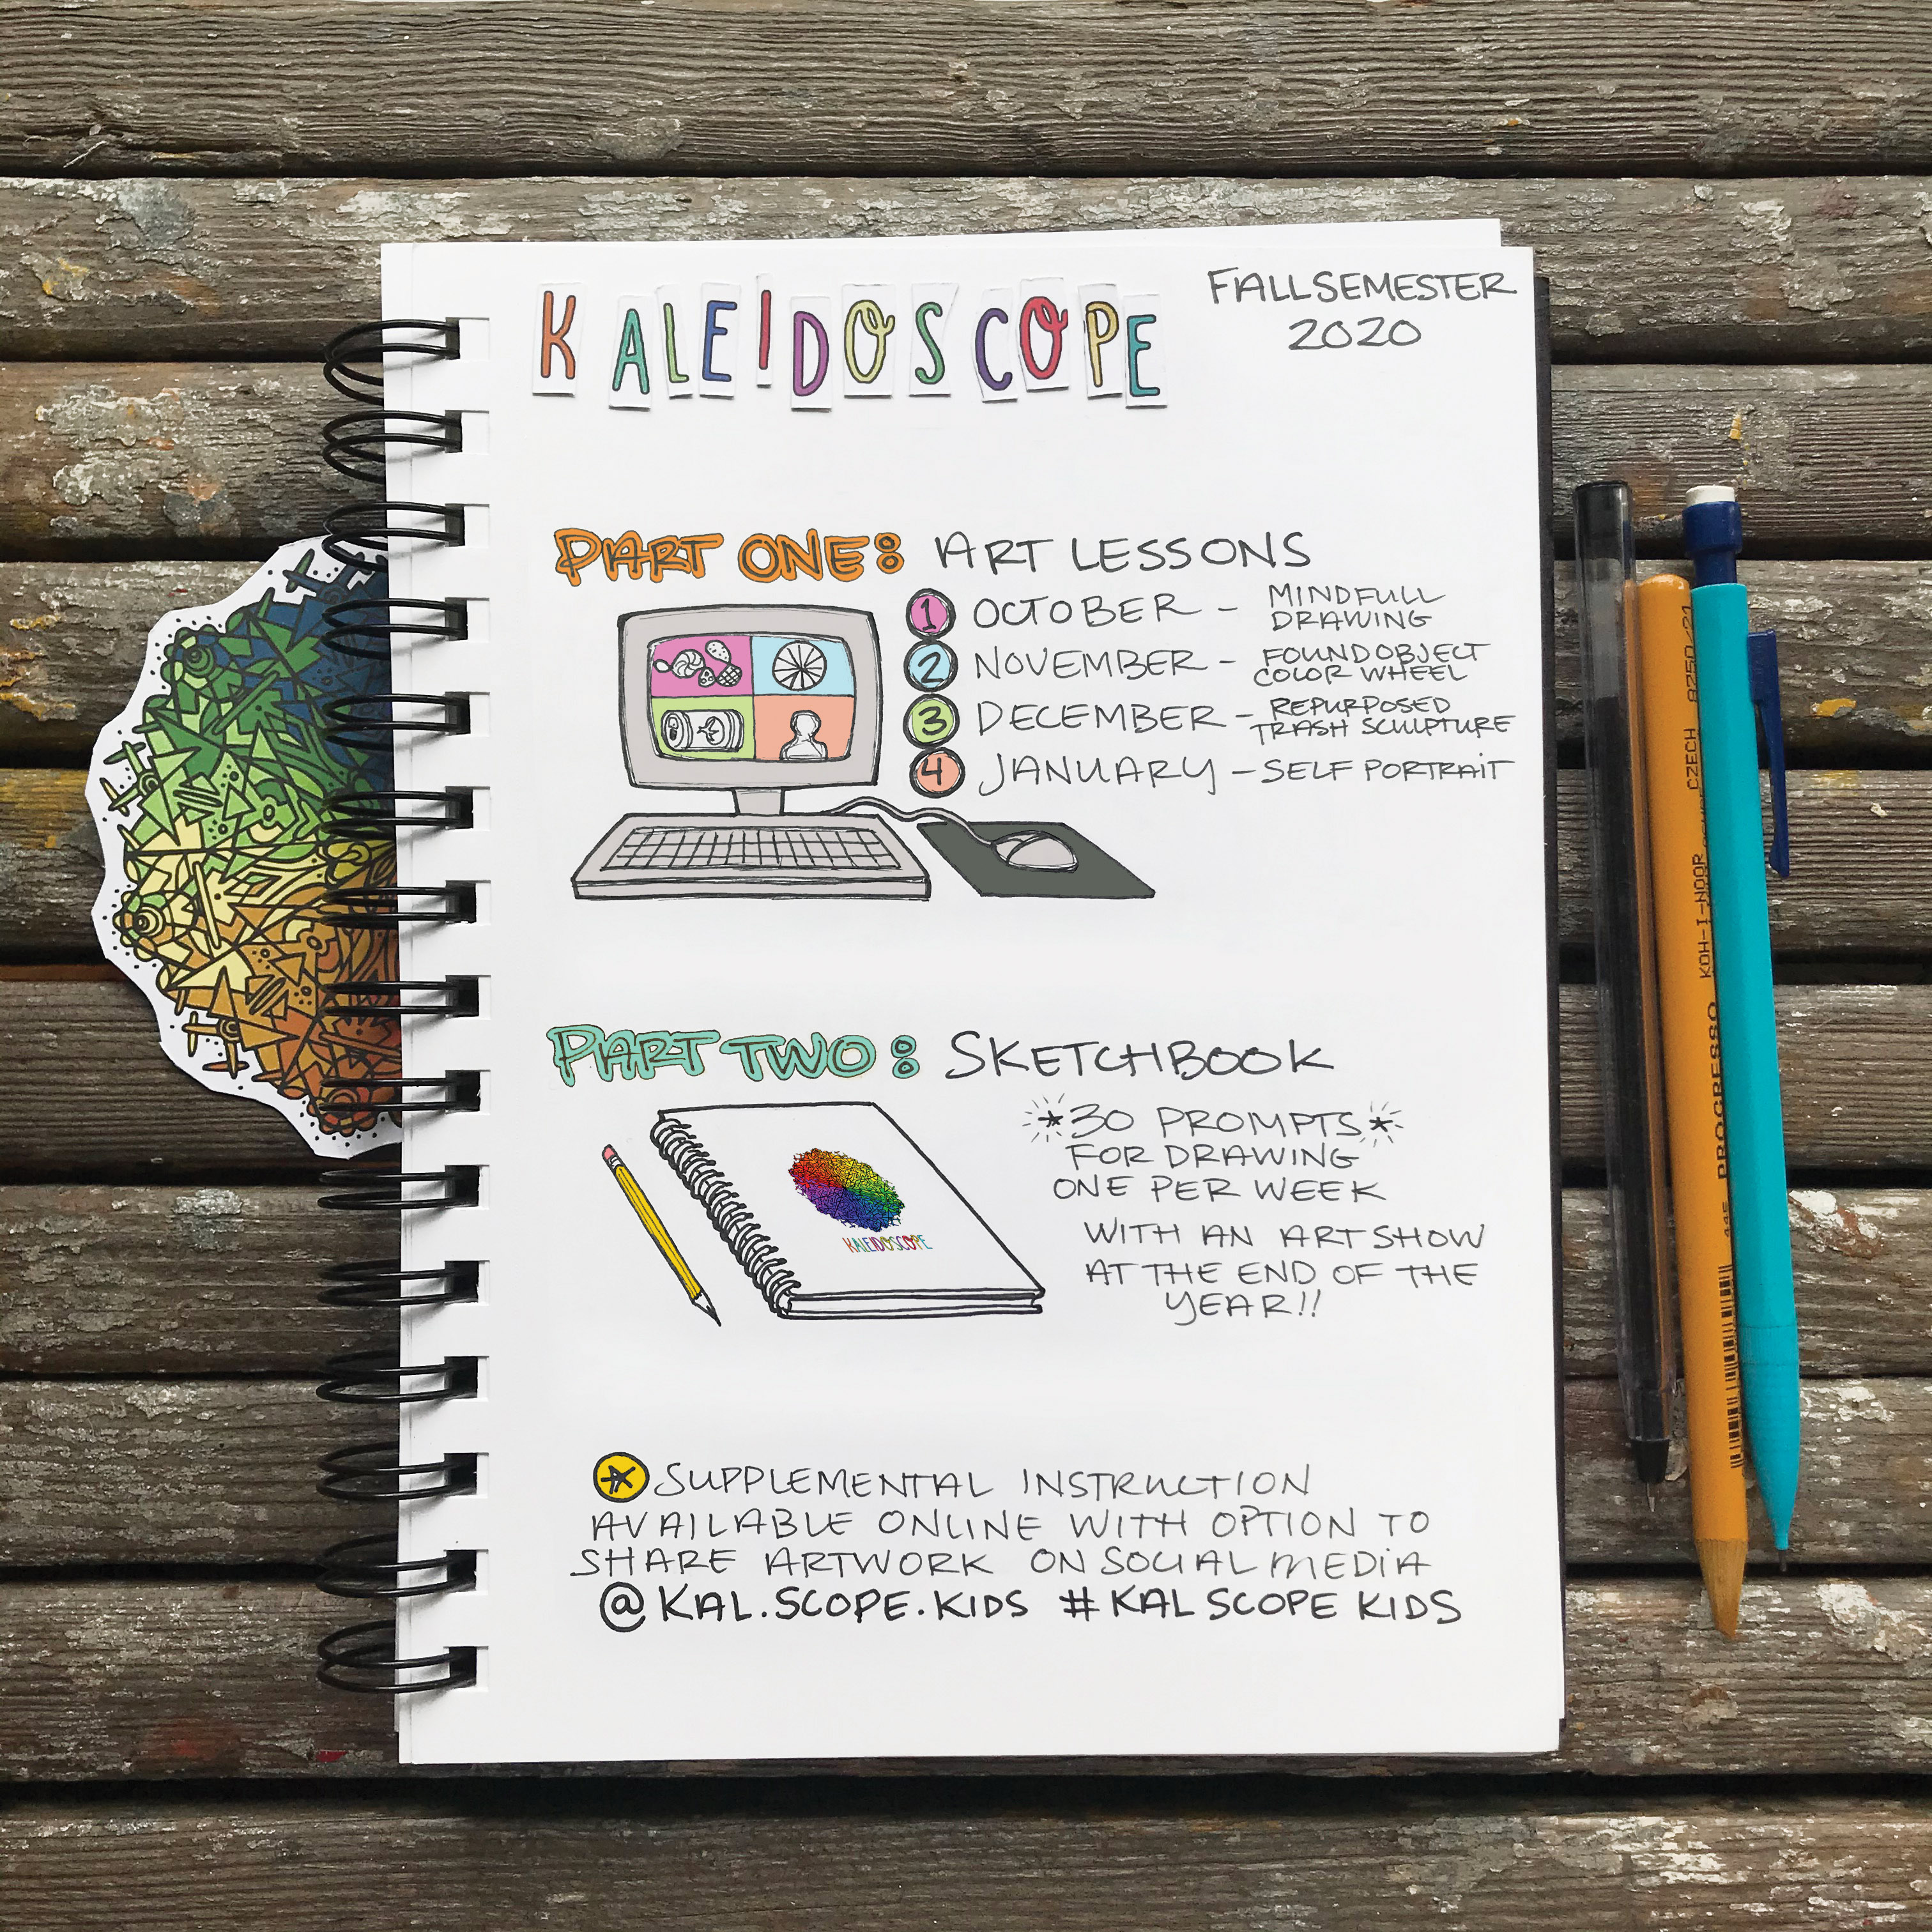 KALEIDOSCOPE
FALL SEMESTER
2020
PART ONE: ART LESSONS
1 OCTOBER - MINDFULL
DRAWING
2 NOVEMBER - FOUND OBJECT
COLOR WHEEL
3 DECEMBER - REPURPOSED
TRASH SCULPTURE
4 JANUARY - SELF PORTRAIT
PART TWO: SKETCHBOOK
*30 PROMPTS*
FOR DRAWING
ONE PER WEEK
WITH AN ART SHOW
AT THE END OF THE
YEAR!!
KALEIDOSCOPE
SUPPLEMENTAL INSTRUCTION
AVAILABLE ONLINE WITH OPTION TO
SHARE ARTWORK ON SOCIAL MEDIA
@KAL.SCOPE.KIDS #KALSCOPEKIDS
PROGRESSO KOH-I-NOOR CZECH